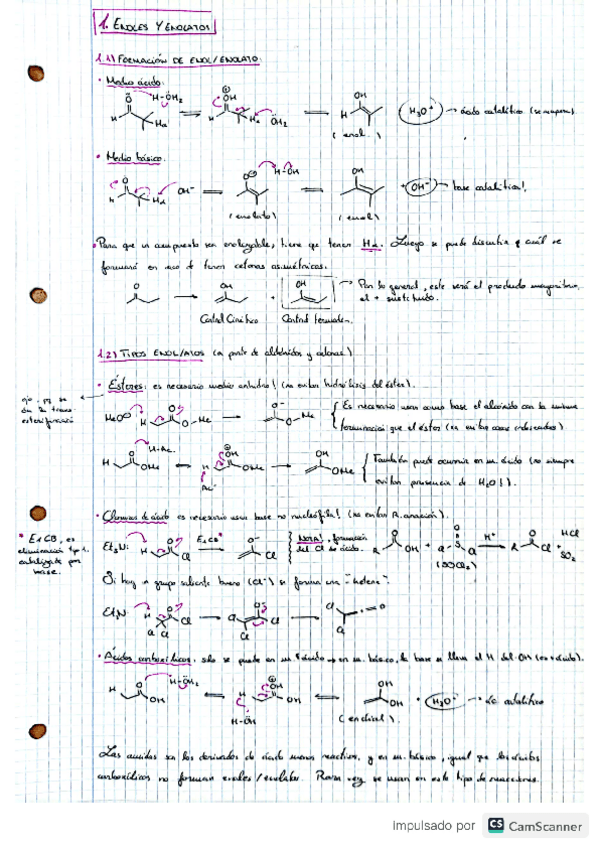 1. ENOLES Y ENOLATOS
1.1) FORMACIÓN DE ENOL/ENOLATO:
• Medio ácido:
H-OH₂
H
Hα
OH
H
Hα
OH₂
OH
H
H₃O⁺ → ácido catalítico (se recupera)
(enol)
• Medio básico.
H
Hα
OH⁻
H-OH
(enolato)
OH
(enol)
+ OH⁻ → base catalítica!
• Para que un compuesto sea enolizable, tiene que tener Hα. Luego se puede discutir cuál se
formará en caso de tener cetonas asimétricas.
O
OH
+
OH
→ Por lo general, este será el producto mayoritario,
el + sustituido.
Control Cinético
Control termodin.
1.2) TIPOS ENOL/ATOS (a partir de aldehidos y cetonas)
• Ésteres: es necesario medio anhidro! (no evitar hidrólisis del éster).
MeO⁻
H
O-Me
O-Me
Es necesario usar como base el alcóxido con la misma
formación que el éster
H-Ac
H
OMe
OH
OMe
Ac⁻
OH
OMe
También puede ocurrir en m. ácido (no siempre
evitar presencia de H₂O!).
• Cloruros de ácido es necesario usar base no nucleófila!
* E1CB, es
eliminación tipo 1,
catalizada por
base.
Et₃N:
H
Cl
E1CB*
O⁻
Cl
NOTA!, formación
del Cl de ácido.
R
OH
+
Cl
S
Cl
(SOCl₂)
H⁺
R
Cl
+
HCl
SO₂
Si hay un grupo saliente bueno (Cl⁻) se forma una "cetena"
Et₃N:
H
Cl
Cl
Cl
Cl
Cl
Cl
Cl
Cl
=O
• Ácidos carboxílicos: sólo se puede en m. ácido → en m. básico, la base se lleva el H del OH (es + ácido).
H
H-OH₂
OH
H
OH
OH
H-OH
OH
OH
+ H₃O⁺ → ác catalítico
(enodiol).
Las amidas son los derivados de ácido menos reactivos, y en m. básico, igual que los ácidos
carboxílicos no forman enoles/enolatos. Rara vez se usan en este tipo de reacciones.
Impulsado por CS CamScanner